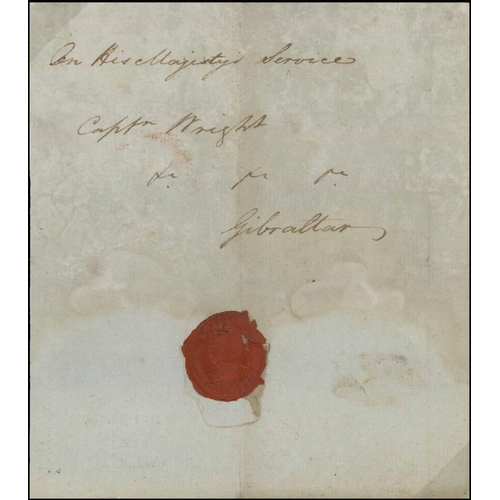 On His Majesty's Service
Captn Wright
&c &c &c
Gibraltar